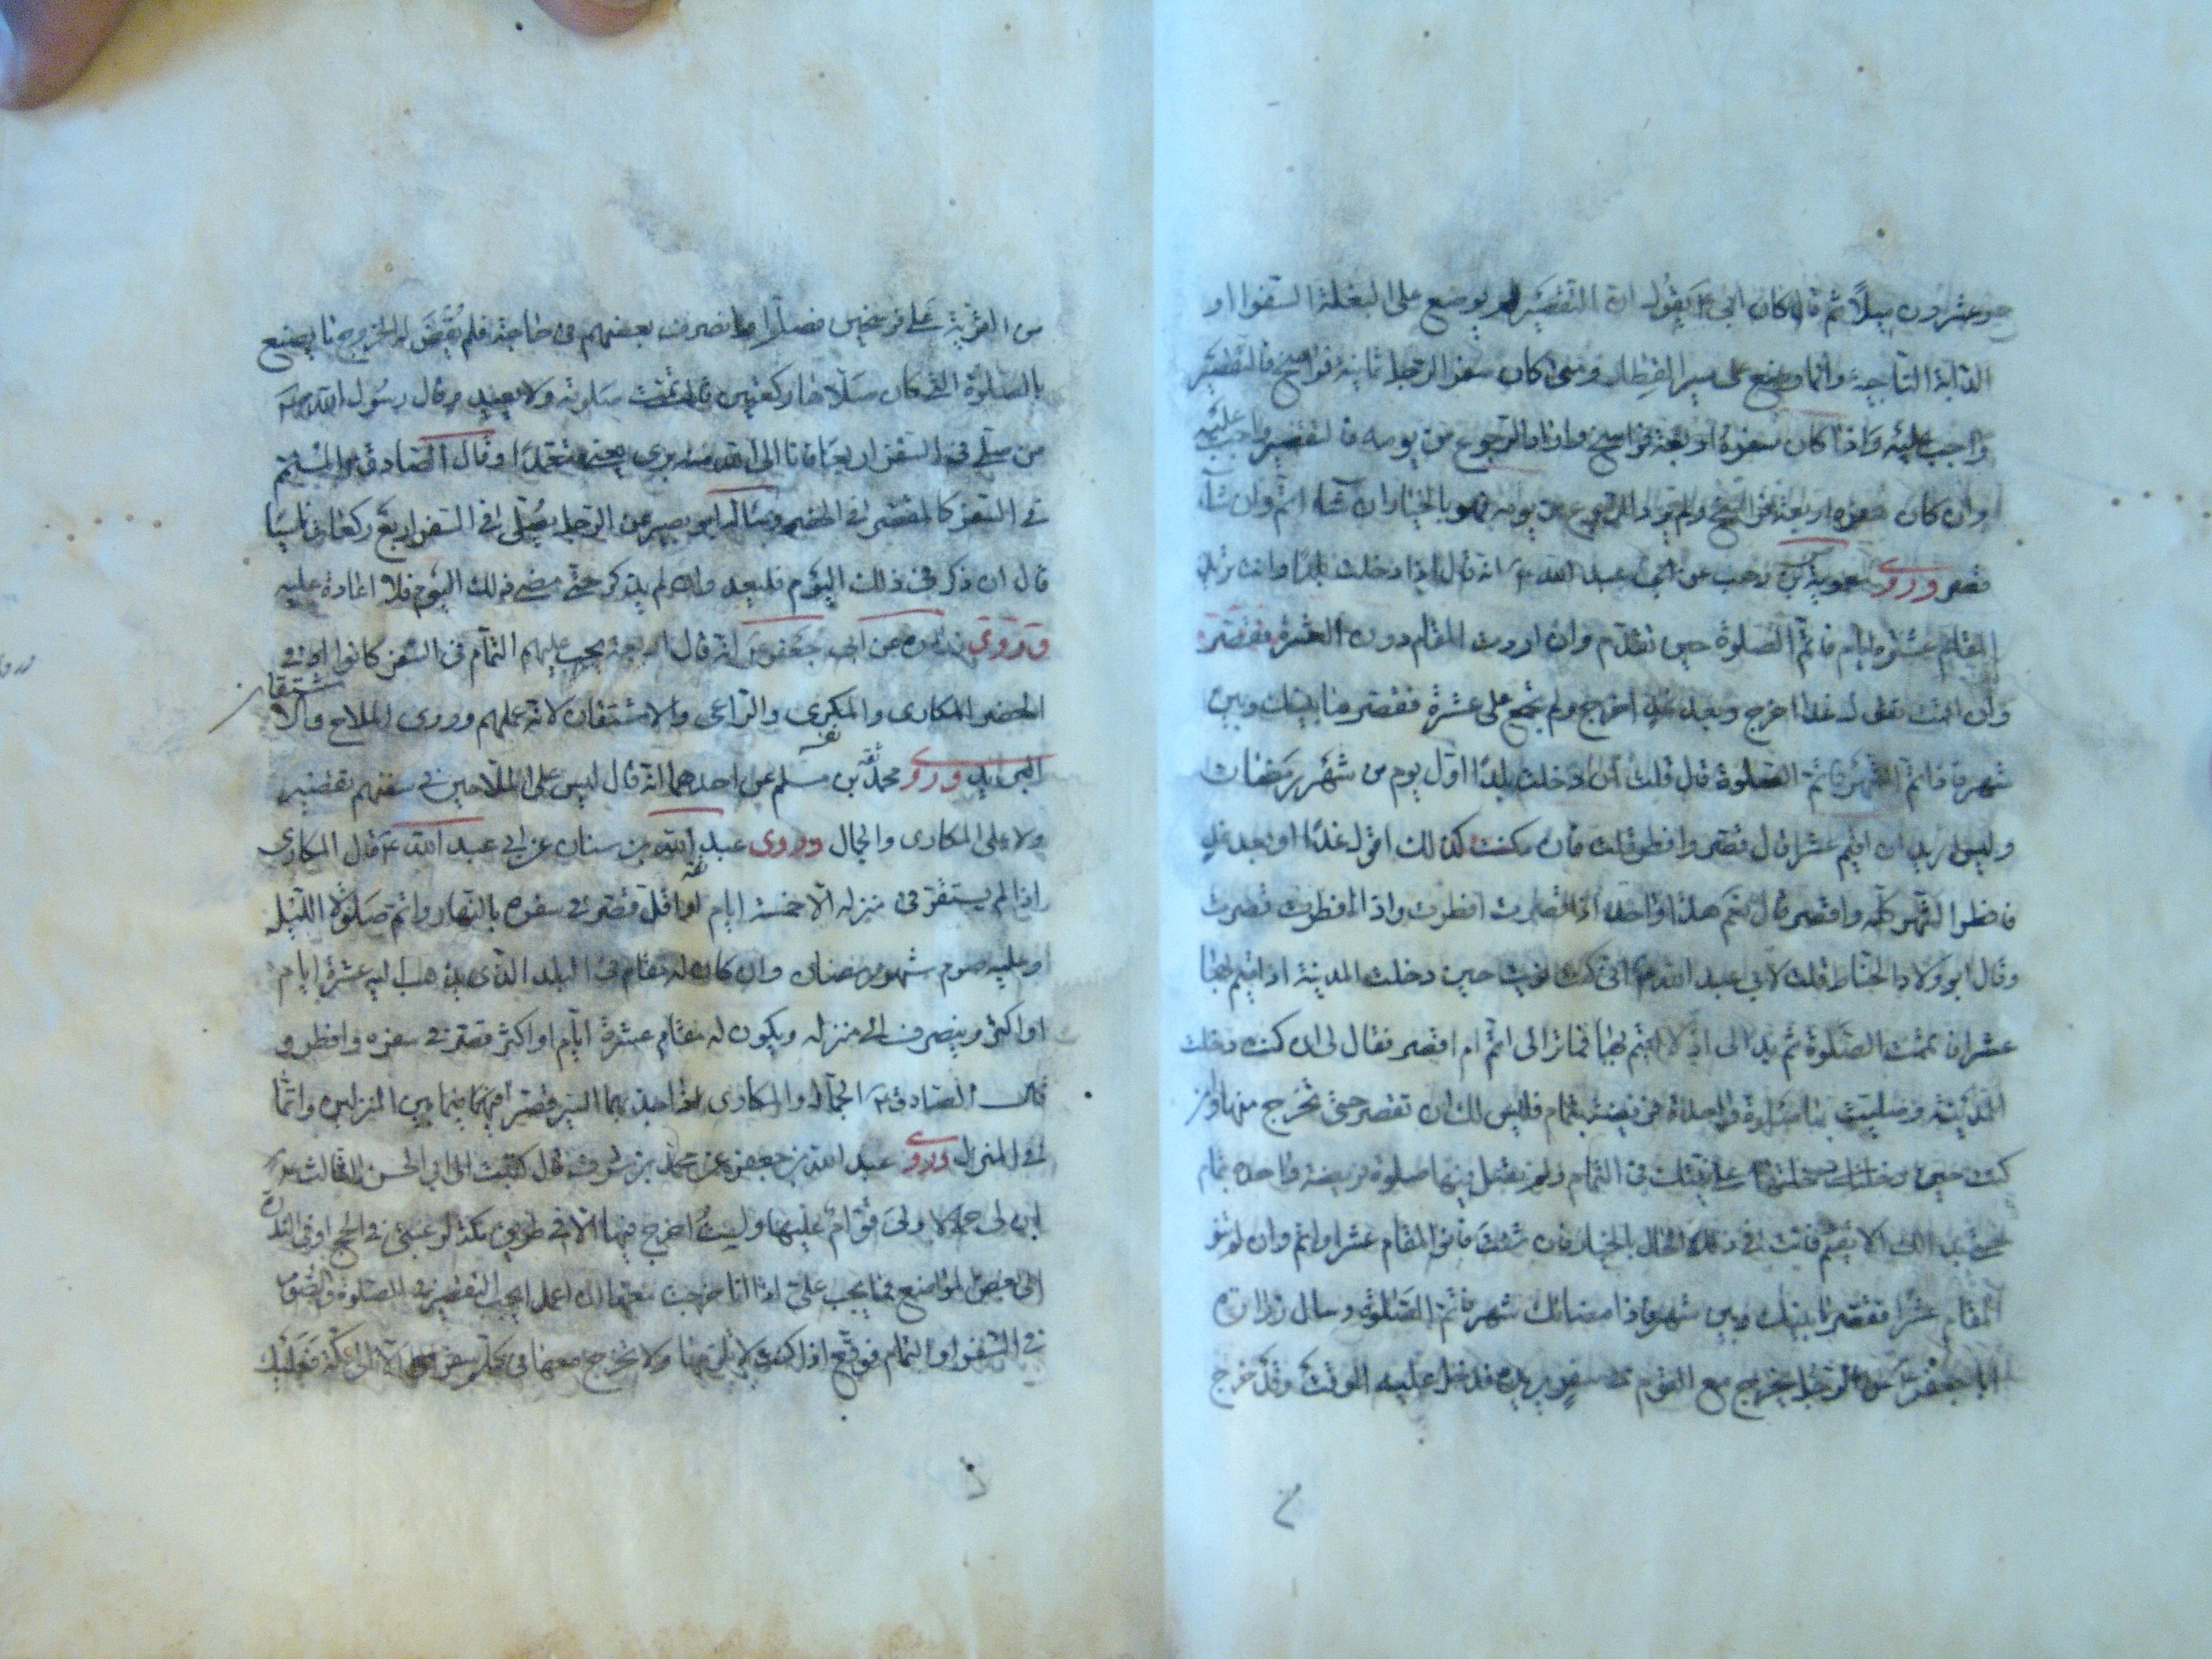 وعشرون ميلاً ثم قال كان ابي ع يقول ان التقصير لم يوضع على البغلة السفوا او
الدابة الناجية وانما وضع على سير القطار ومتى كان سفر الرجل ثمانية فراسخ فالتقصير
واجب عليه واذا كان سفره اربعة فراسخ واراد الرجوع من يومه فالتقصير واجب عليه
وان كان سفره اربعة فراسخ ولم يرد الرجوع من يومه فهو بالخيار ان شاء اتم وان شاء
قصر وروى معوية بن وهب عن ابي عبد الله ع انه قال اذا دخلت بلدًا وانت تريد
المقام عشرة ايام فاتم الصلوة حين تقدم وان اردت المقام دون العشرة فقصر
وان اقمت تقول غدا اخرج وبعد غد اخرج ولم تجمع على عشرة فقصر ما بينك وبين
شهر فاذا تم الشهر فاتم الصلوة قال قلت ان دخلت بلدًا اول يوم من شهر رمضان
وليس اريد ان اقيم عشرا قال قصر وافطر قلت فان مكثت كذلك اقول غدًا او بعد غد
فافطر الشهر كله واقصر قال نعم هذا واحد اذا قصرت افطرت واذا افطرت قصرت
وقال ابو ولاد الحناط قلت لابي عبد الله ع اني كنت نويت حين دخلت المدينة ان اقيم بها
عشرا فاتممت الصلوة ثم بدا لي ان لا اقيم بها فما ترى لي اتم ام اقصر فقال لي ان كنت دخلت
المدينة وصليت بها صلوة واحدة فريضة بتمام فليس لك ان تقصر حتى تخرج منها وان
كنت حين دخلتها على نيتك في التمام ولم تصل فيها صلوة فريضة واحدة بتمام
حتى بدا لك الا تقيم فانت في تلك الحال بالخيار ان شئت فانو المقام عشرا واتم وان لم تنو
المقام عشرا فقصر ما بينك وبين شهر فاذا مضى لك شهر فاتم الصلوة وسال زرارة
ابا جعفر ع عن الرجل يخرج مع القوم في سفر يريده فدخل عليه الوقت وقد خرج
من القرية على فرسخين فصلوا وانصرف بعضهم في حاجة فلم يقض له الخروج ما يصنع
بالصلوة التي كان صلاها ركعتين قال تمت صلوته ولا يعيد وقال رسول الله ص
من صلى في السفر اربعا فانا الى الله منه بري يعني متعمدا وقال الصادق ع المتمم
في السفر كالمقصر في الحضر وساله ابو بصير عن الرجل يصلي في السفر اربع ركعات ناسيا
قال ان ذكر في ذلك اليوم فليعد وان لم يذكر حتى مضى ذلك اليوم فلا اعادة عليه
وروى زرارة عن ابي جعفر ع انه قال اربعة يجب عليهم التمام في السفر كانوا او في
الحضر المكاري والمكري والراعي والاشتقان لانه عملهم وروى الملاح والا
شتقان
البريد وروى محمد بن مسلم عن احدهما انه قال ليس على الملاحين في سفنهم تقصير
ولا على المكاري والجمال وروى عبد الله بن سنان عن ابي عبد الله ع قال المكاري
اذا لم يستقر في منزله الا خمسة ايام او اقل قصر في سفره بالنهار واتم صلوة الليل
وعليه صوم شهر رمضان وان كان له مقام في البلد الذي يذهب اليه عشرة ايام
او اكثر وينصرف الى منزله ويكون له مقام عشرة ايام او اكثر قصر في سفره وافطر و
قال الصادق ع الجمال والمكاري اذا جد بهما السير قصرا فيما بين المنزلين واتما
في المنزل وروى عبد الله بن جعفر عن محمد بن شرف قال كتبت الى ابي الحسن الثالث ع
ان لي جمالا ولي قوام عليها ولست اخرج فيها الا في طريق مكة لرغبتي في الحج او في الندرة
الى بعض المواضع فما يجب علي اذا انا خرجت معها ان اعمل ايجب التقصير في الصلوة والصوم
في السفر او التمام فوقع اذا كنت لا تلزمها ولا تخرج معها في كل سفر الا الى مكة فعليك